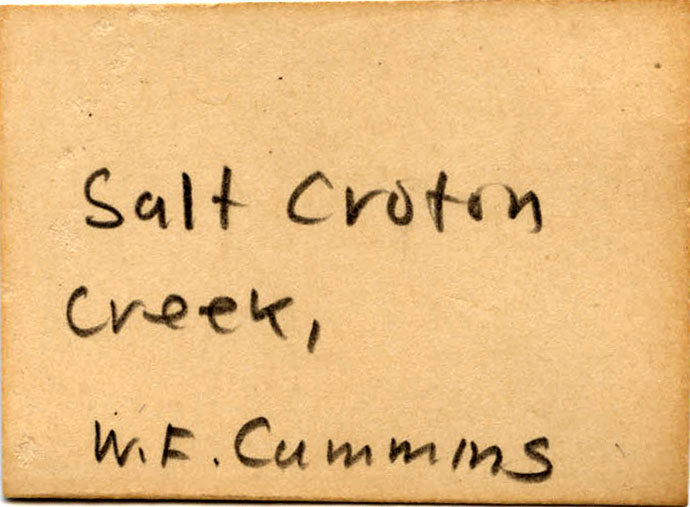 Salt Croton
Creek,
W.F. Cummins